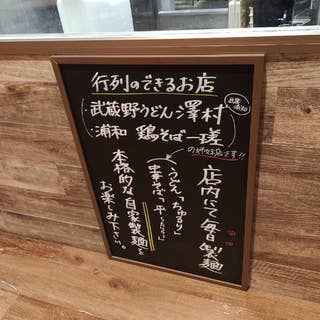 行列のできるお店
・武蔵野うどん 澤村
武蔵浦和
・浦和 鶏そば一瑳
の姉妹店です!!
店内にて毎日製麺
うどん「ちゅるり」
中華そば「平
本格的な自家製麺を
お楽しみ下さい。